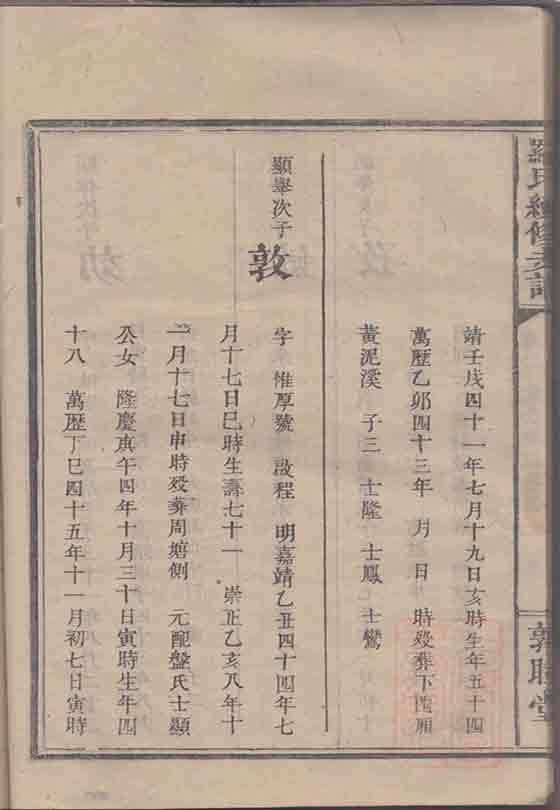 羅氏續修支譜
敦睦堂
靖壬戌四十一年七月十九日亥時生年五十四
萬歷乙卯四十三年 月 日 時歿葬下西厢
黃泥溪 子三 士隆 士鳳 士鸞
顯舉次子
敦
字 惟厚號 啟程 明嘉靖乙丑四十四年七
月十七日巳時生壽七十一 崇正乙亥八年十
一月十七日申時歿葬周塘側 元配盤氏士顯
公女 隆慶庚午四年十月三十日寅時生年四
十八 萬歷丁巳四十五年十一月初七日寅時